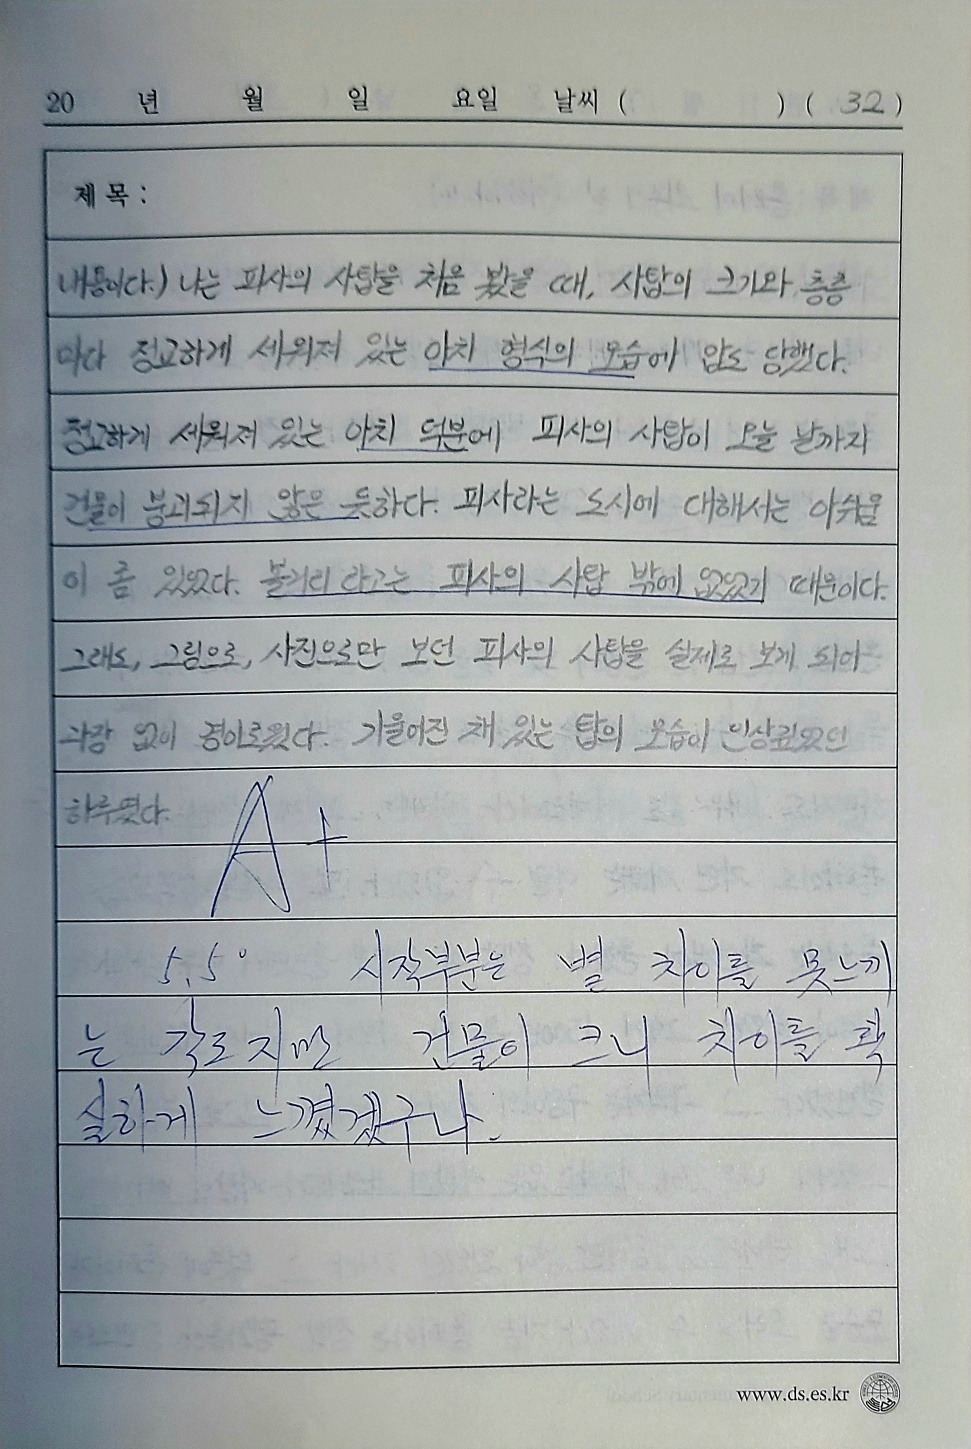 20 년 월 일 요일 날씨 ( ) ( 32 )
제 목 :
내용이다.) 나는 피사의 사탑을 처음 봤을 때, 사탑의 크기와, 층층
마다 정교하게 세워져 있는 아치 형식의 모습에 압도 당했다.
정교하게 세워져 있는 아치 덕분에 피사의 사탑이 오늘 날까지
건물이 붕괴되지 않은 듯하다. 피사라는 도시에 대해서는 아쉬움
이 좀 있었다. 볼거리 라고는 피사의 사탑 밖에 없었기 때문이다.
그래도, 그림으로, 사진으로만 보던 피사의 사탑을 실제로 보게 되어
과장 없이 경이로웠다. 기울어진 채 있는 탑의 모습이 인상깊었던
하루였다.
A+
5.5° 시작부분은 별 차이를 못느끼
는 각도지만 건물이 크니 차이를 확
실하게 느꼈겠구나.
www.ds.es.kr